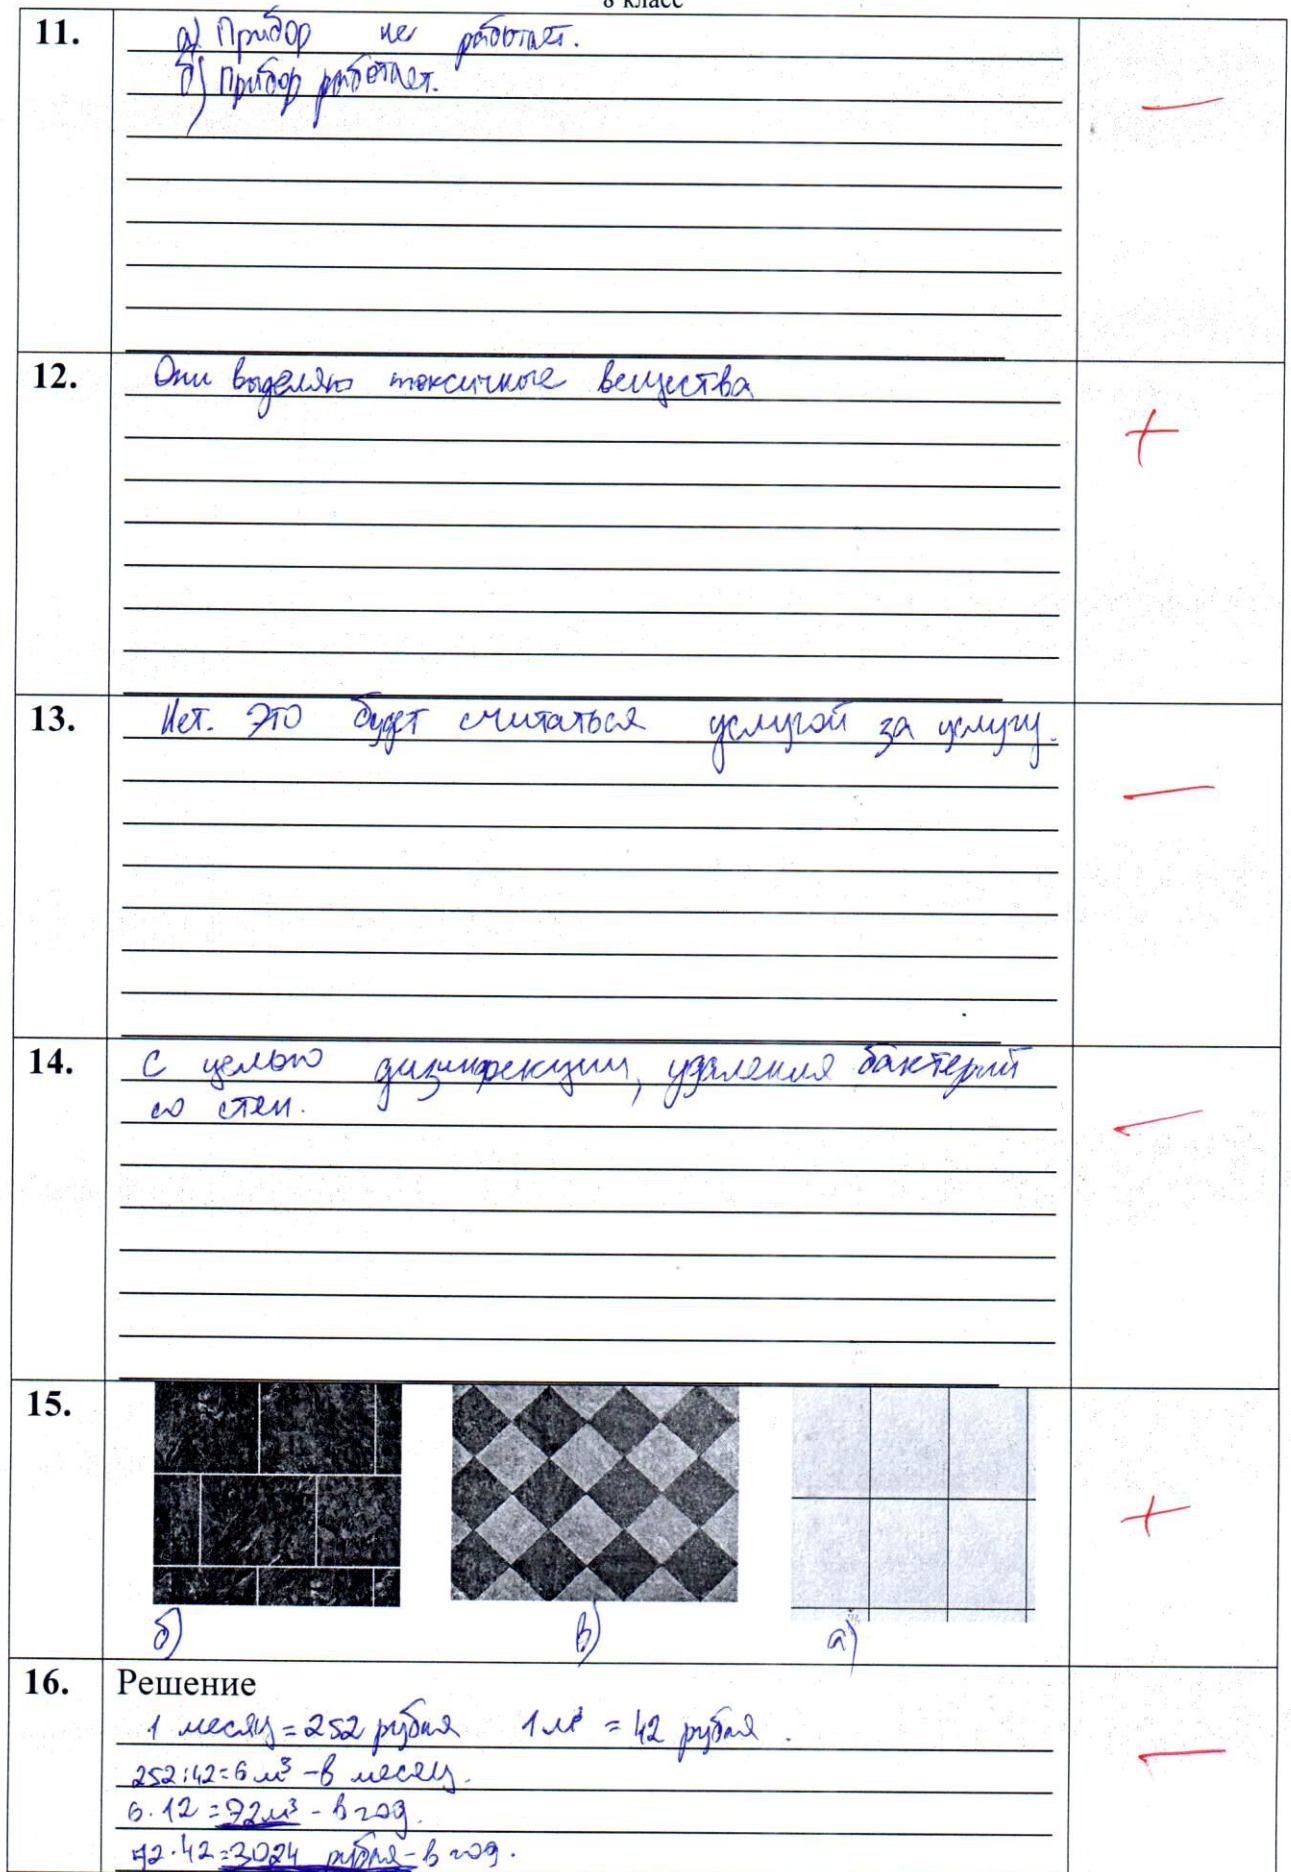 8 класс
11.
а) Прибор не работает.
б) Прибор работает.
—
12.
Они выделяю токсичные вещества
+
13.
Нет. Это будет считаться услугой за услугу.
—
14.
С целью дизинфекции, удаления бактерий
со стен.
—
15.
б) в) а)
+
16.
Решение
1 месяц = 252 рубля 1 м³ = 42 рубля.
252:42=6 м³ - в месяц.
6·12=72м³ - в год.
72·42=3024 рубля - в год.
—